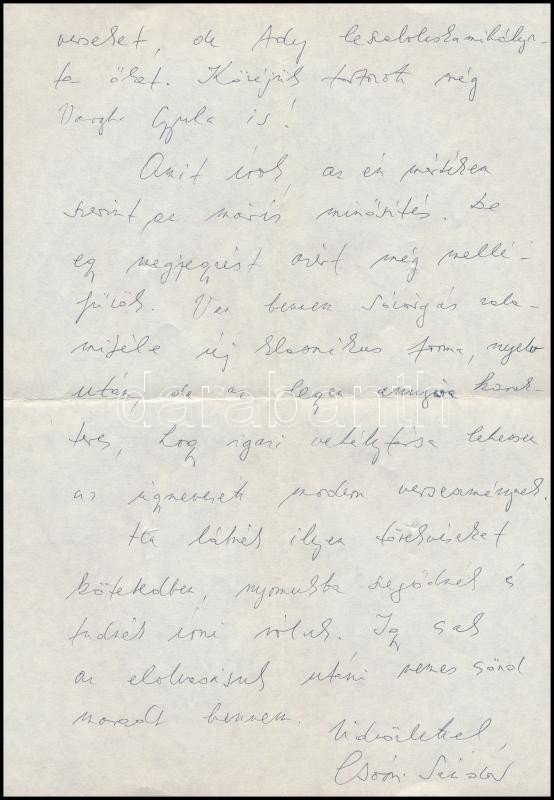 verseket, de Ady leszabolcskamihályoz-
ta őket. Közéjük tartozott még
Vargha Gyula is!
Amit írok, az én mértékem
szerint ez máris minősítés. De
egy megjegyzést azért még mellé-
fűzök. Van bennem sóvárgás vala-
miféle új klasszikus forma, nyelv
után, de az legyen annyira karak-
teres, hogy igazi vetélytársa lehessen
az úgynevezett modern verseszménynek.
Ha látnék ilyen törekvéseket
kötetedben, nyomukba szegődnék és
tudnék írni róluk. Így csak
az elolvasásuk utáni nemes csönd
maradt bennem.
Üdvözlettel,
Csoóri Sándor
darabanth